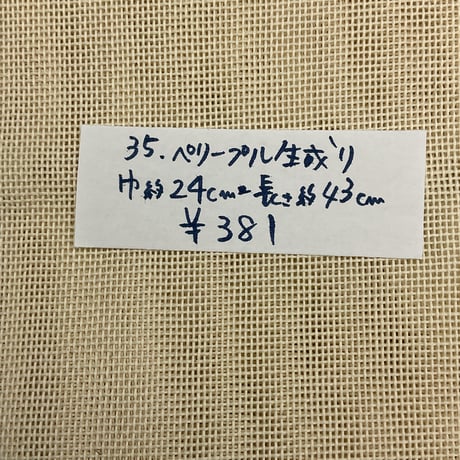 35.ペリープル生成り
巾約24cm 長さ約43cm
¥381